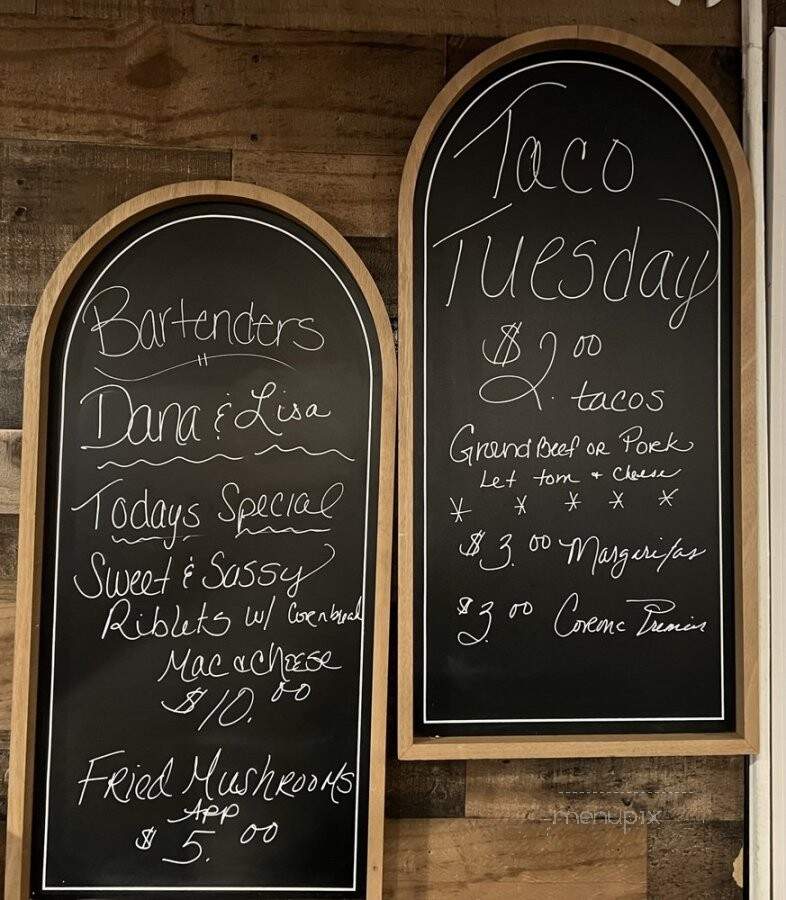 Bartenders
Dana & Lisa
Todays Special
Sweet & Sassy
Riblets w/ Cornbread
Mac & Cheese
$10.00
Fried Mushrooms
APP
$5.00
Taco
Tuesday
$2.00
tacos
Ground Beef or Pork
Let tom + Cheese
* * * * *
$3.00 Margaritas
$3.00 Corona Premier
menupix